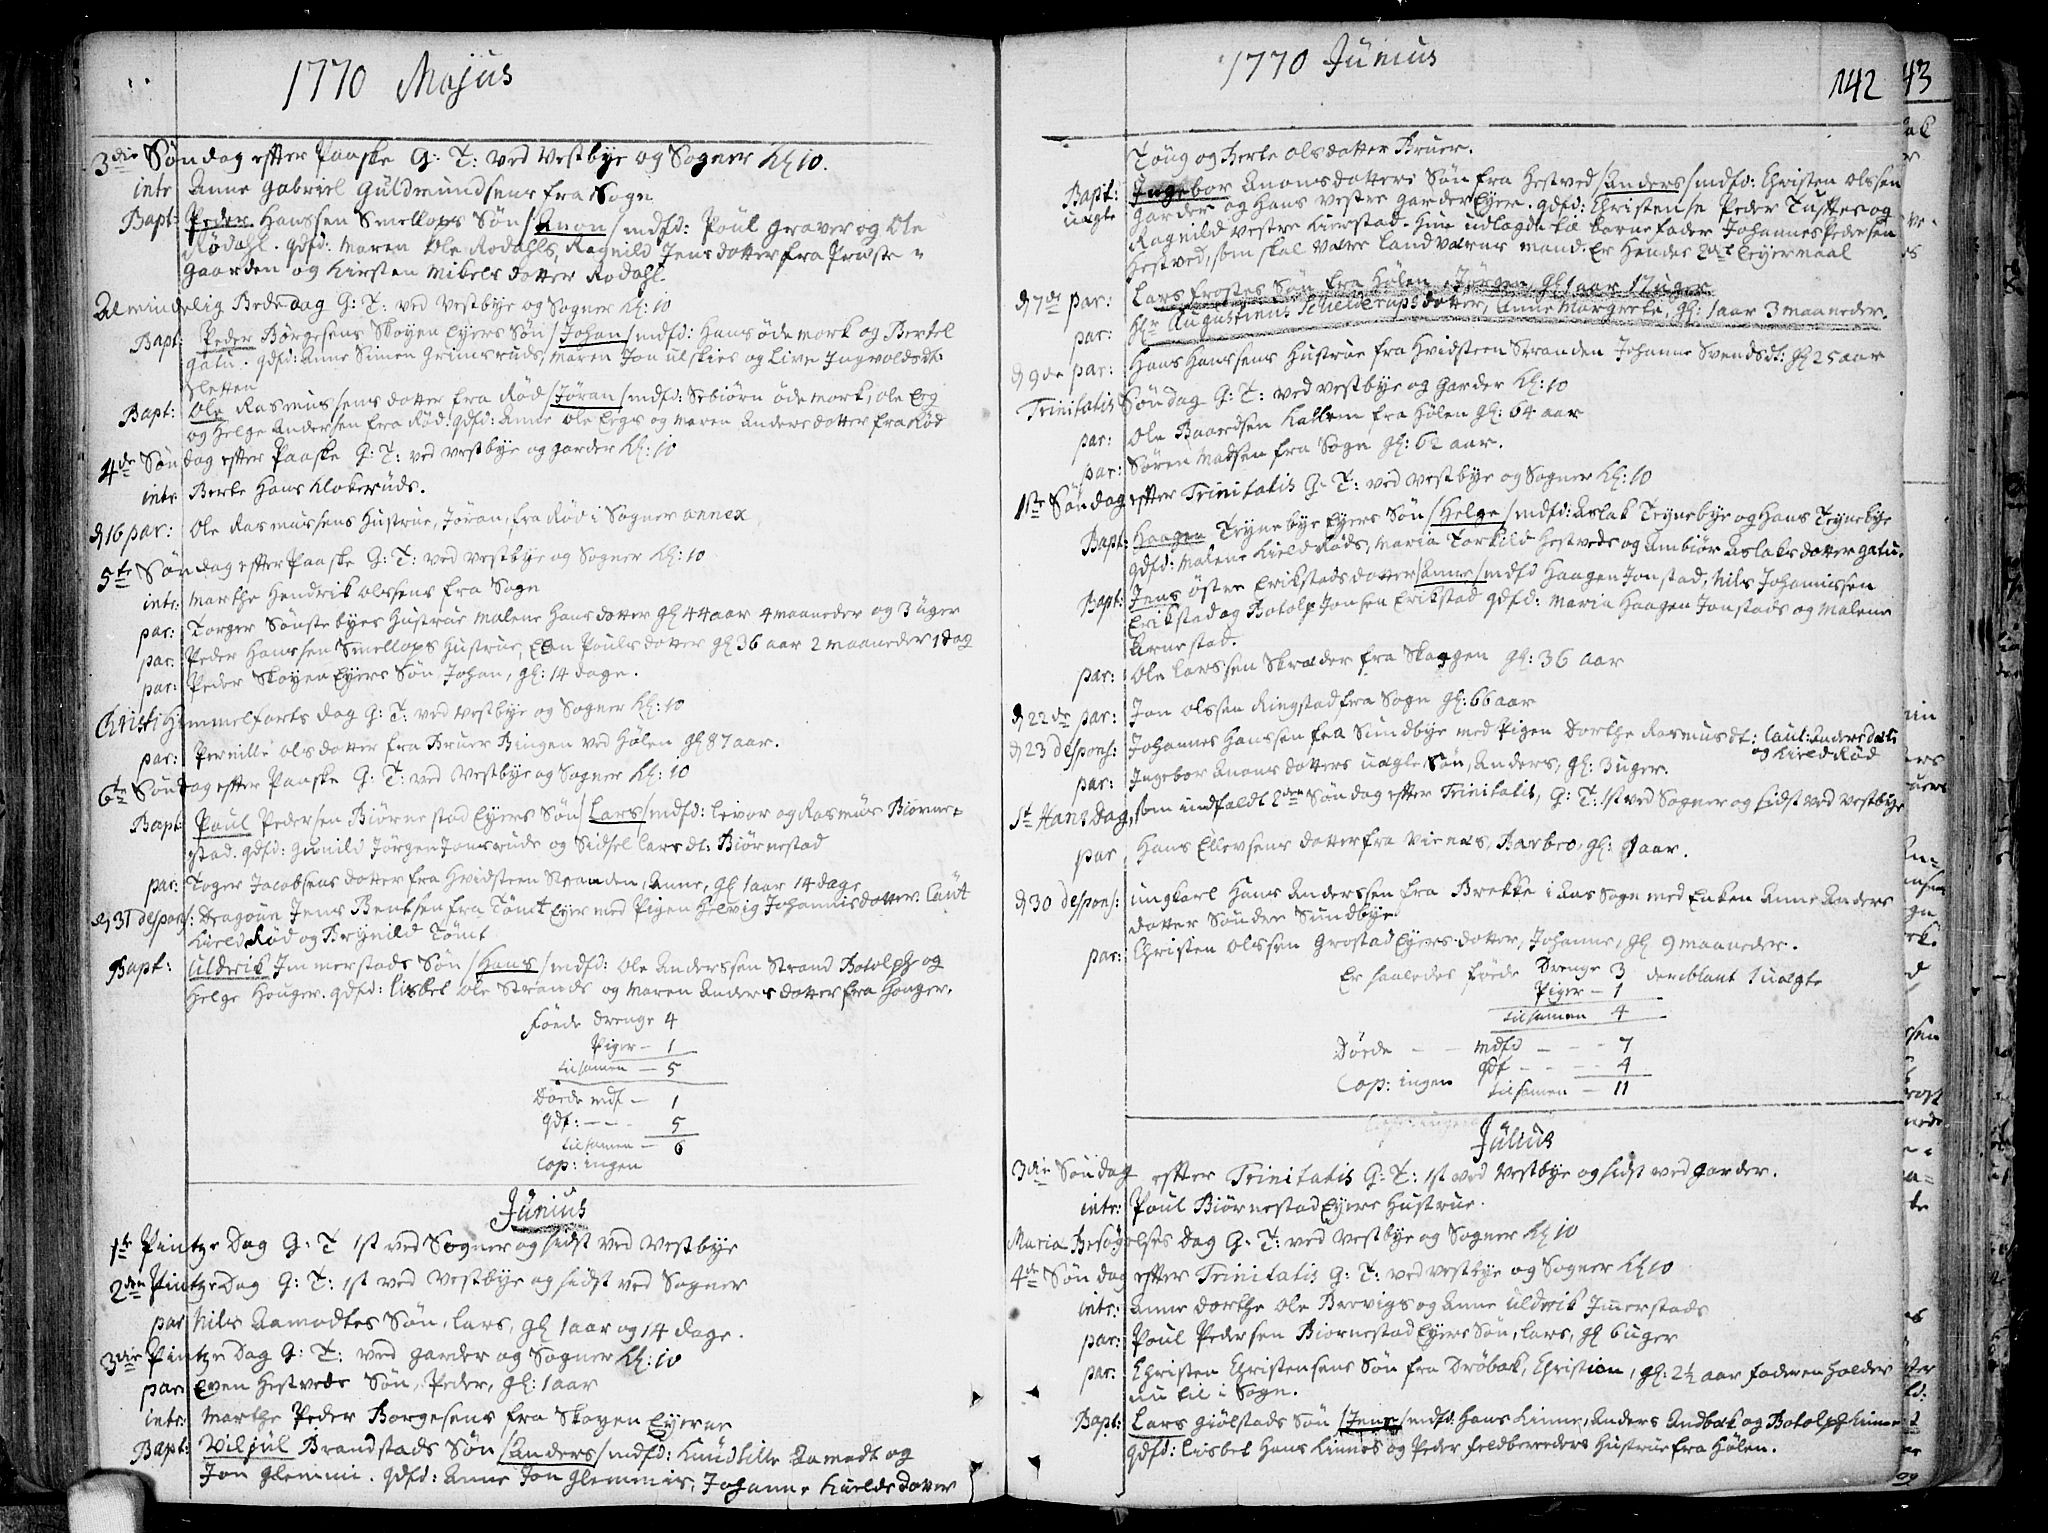 1770 Majus
3die Søndag efter Paaske G: T: ved Vestbye og Sogner Kl 10.
intr Anne Gabriel Guldmundsens fra Sogn
Bapt: Peder Hanssen Smellops Søn / Anon / mdfd: Poul Graver og Ole
Rødahl. qdfd: Maren Ole Rodahls, Ragnild Jensdotter fra Præste-
gaarden og Kirsten Nikelsdotter Rodahl.
Almindelig Bededag G: T: ved Vestbye og Sogner Kl: 10
Bapt: Peder Børgesens Skoyen Eyers Søn / Johan / mdfd: Hans ødemork og Bertel
Gatu. qdfd: Anne Simen Grimsruds, Maren Jon Ulskies og Live Ingvoldsdt:
Sletten
Bapt: Ole Rasmussens dotter fra Rød / Jøran / mdfd: Sebiørn ødemork, Ole Eeg
og Helge Andersen fra Rød. qdfd: Anne Ole Eegs og Maren Andersdotter fra Rød
4de Søndag efter Paaske G: T: ved Vestbye og Garder Kl: 10
intr Berte Hans Klokeruds.
d 16 par: Ole Rasmussens Hustrue, Jøran, fra Rød i Sogner annex
5te Søndag efter Paaske G: T: ved Vestbye og Sogner Kl: 10
intr: Marthe Hendrik Olssens fra Sogn
par: Torger Sønstebyes Hustrue Malene Hansdotter gl 44 aar 4 maaneder og 3 uger
par: Peder Hanssen Smellops Hustrue, Elen Poulsdotter gl 36 aar 2 maaneder 1 dag
par: Peder Skoyen Eyers Søn Johan, gl: 14 dage.
Christi Himmelfarts dag G: T: ved Vestbye og Sogner Kl: 10
par: Pernille Olsdotter fra Bruer Bingen ved Hølen gl 87 aar.
6te Søndag efter Paaske G: T: ved Vestbye og Sogner Kl: 10
Bapt: Poul Pedersen Biørnestad Eyers Søn / Lars / mdfd: Levor og Rasmus Biørne-
stad. qdfd: Gunild Jørgen Jonsruds og Sidsel Larsdt: Biørnestad
par: Toger Jacobsens dotter fra Hvidsteen Stranden, Anne, gl 1 aar 14 dage
d 31 despons: Dragoun Jens Bentsen fra Tømt Eyer med Pigen Helvig Johannisdotter. Caut
Kield Rød og Brynild Tømt
Bapt: Uldrik Immerstads Søn / Hans / mdfd: Ole Anderssen Strand Botolph og
Helge Houger. qdfd: Lisbet Ole Strands og Maren Andersdotter fra Houger.
Føede Drenge 4
Piger - 1
tilsamen - 5
Døede mdf - 1
qdf: - - - 5
tilsamen - 6
Cop: ingen
Junius
1te Pintze Dag G: T 1st ved Sogner og sidst ved Vestbye
2den Pintze Dag G: T: 1st ved Vestbye og sidst ved Sogner
par Nils Aamodtes Søn, Lars, gl 1 aar og 14 dage.
3die Pintze Dag G: T: ved Garder og Sogner Kl: 10
par Even Hestveds Søn, Peder, gl: 1 aar
intr: Marthe Peder Borgesens fra Skoyen Eyerne
Bapt: Viljul Brandstads Søn / Anders / mdfd: Knud Lille Aamodt og
Jon Glemmi. qdfd: Anne Jon Glemmis, Johanne Kieldsdotter
1770 Junius
142
43
Toug og Berte Olsdotter Bruer.
Bapt: Ingebor Anonsdotters Søn fra Hestved / Anders / mdfd: Christen Olssen
uægte Garder og Hans Vestre Garder Eyer. qdfd: Christense Peder Tusstes og
Ragnild Vestre Kierstad. Hun udlagde til barnefader Johannes Pedersen
Hestved, som skal være Landværns mand. Er Hendes 2det Leyermaal
d 7de par: Lars Frostes Søn fra Hølen, Jørgen, gl 1 aar 17 uger
par: Hr Augustinus Schielderups dotter, Anne Margrete, gl: 1 aar 3 maaneder.
d 9de par: Hans Hanssens Hustrue fra Hvidsteen Stranden Johanne Svendsdt: gl 25 aar
Trinitatis Søndag G: T: ved Vestbye og Garder Kl: 10
par: Ole Baardsen Kallem fra Hølen gl: 64 aar
par: Søren Madsen fra Sogn gl: 62 aar.
1ste Søndag efter Trinitatis G: T: ved Vestbye og Sogner Kl: 10
Bapt: Haagen Teynebye Eyers Søn / Helge / mdfd: Aslak Teynebye og Hans Teynebye
qdfd: Malene Kield Røds, Maria Torkild Hestveds og Ambiør Aslaksdotter Gatu.
Bapt: Jens østre Erikstads dotter / Anne / mdfd Haagen Jonstad, Nils Johannissen
Erikstad og Botolp Jonsen Erikstad qdfd: Maria Haagen Jonstads og Malene
Arnestad.
par: Ole Larssen Skræder fra Skoggen gl: 36 aar
d 22de par: Jon Olssen Ringstad fra Sogn gl: 66 aar
d 23 despons: Johannes Hanssen fra Sundbye med Pigen Dorthe Rasmusdt: Caut: Anders Dæli
og Kield Rød
par: Ingebor Anonsdotters uægte Søn, Anders, gl: 3 uger.
St Hans Dag, som indfaldt 2den Søndag efter Trinitatis, G: T: 1st ved Sogner og sidst ved Vestbye
par Hans Ellevsens dotter fra Vienes, Barbro, gl: 1 aar.
d 30 despons: ungkarl Hans Anderssen fra Brekke i Aas Sogn med Enken Anne Anders
dotter Sønder Sundbye
par: Christen Olssen Grostad Eyers dotter, Johanne, gl 9 maaneder.
Er saaledes føede Drenge 3 deriblant 1 uægte
Piger - 1
tilsamen 4
Døede - - mdfd - - - 7
qdf - - - - 4
Cop: ingen tilsamen - 11
Julius
3die Søndag efter Trinitatis G: T: 1st ved Vestbye og sidst ved Garder.
intr: Poul Biørnestad Eyers Hustrue.
Maria Besøgelses Dag G: T: ved Vestbye og Sogner Kl 10
4de Søndag efter Trinitatis G: T: ved Vestbye og Sogner Kl 10
intr: Anne Dorthe Ole Brevigs og Anne Uldrik Immerstads
par: Poul Pedersen Biørnestad Eyers Søn, Lars, gl 6 uger
par: Christen Christensens Søn fra Drøbak, Christian, gl: 2½ aar faderen holder
nu til i Sogn.
Bapt: Lars Giølstads Søn / Jens / mdfd. Hans Kinne, Anders Andbæk og Botolph Kinne
qdfd: Lisbet Hans Kinnes og Peder Feldbereders Hustrue fra Hølen.